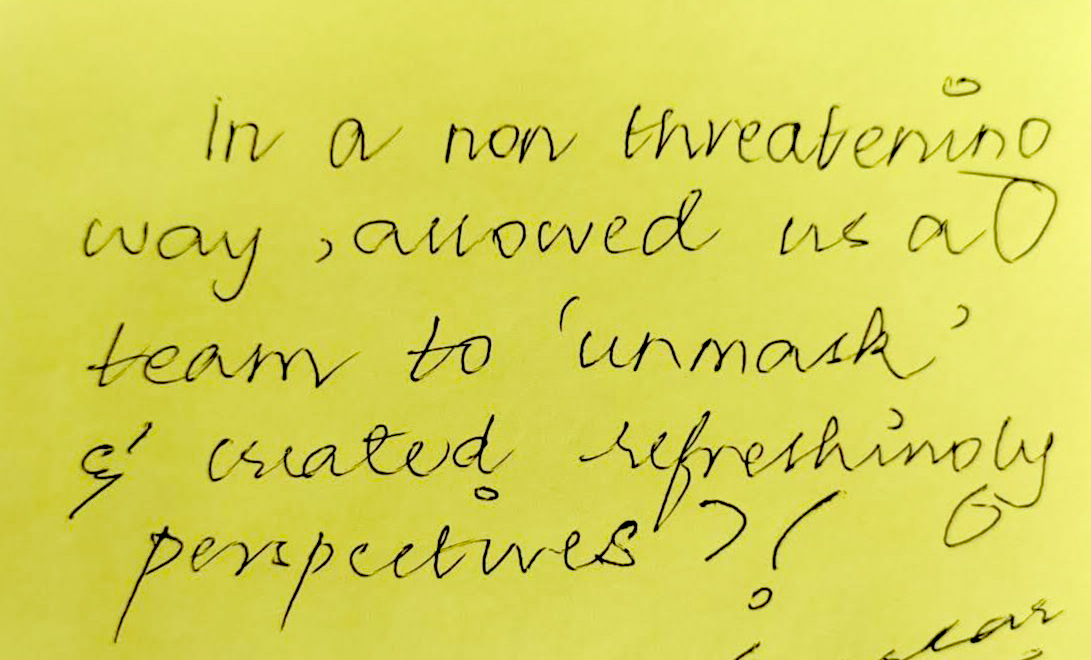 In a non threatening
way, allowed us a
team to 'unmask'
& created refreshingly
perspectives?!